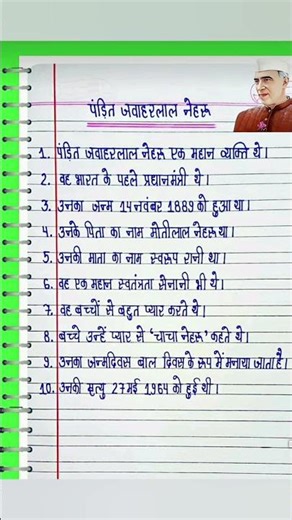 पंडित जवाहरलाल नेहरू
1. पंडित जवाहरलाल नेहरू एक महान व्यक्ति थे।
2. वह भारत के पहले प्रधानमंत्री थे।
3. उनका जन्म 14 नवंबर 1889 को हुआ था।
4. उनके पिता का नाम मोतीलाल नेहरू था।
5. उनकी माता का नाम स्वरूप रानी था।
6. वह एक महान स्वतंत्रता सेनानी भी थे।
7. वह बच्चों से बहुत प्यार करते थे।
8. बच्चे उन्हें प्यार से 'चाचा नेहरू' कहते थे।
9. उनका जन्मदिवस बाल दिवस के रूप में मनाया जाता है।
10. उनकी मृत्यु 27 मई 1964 को हुई थी।